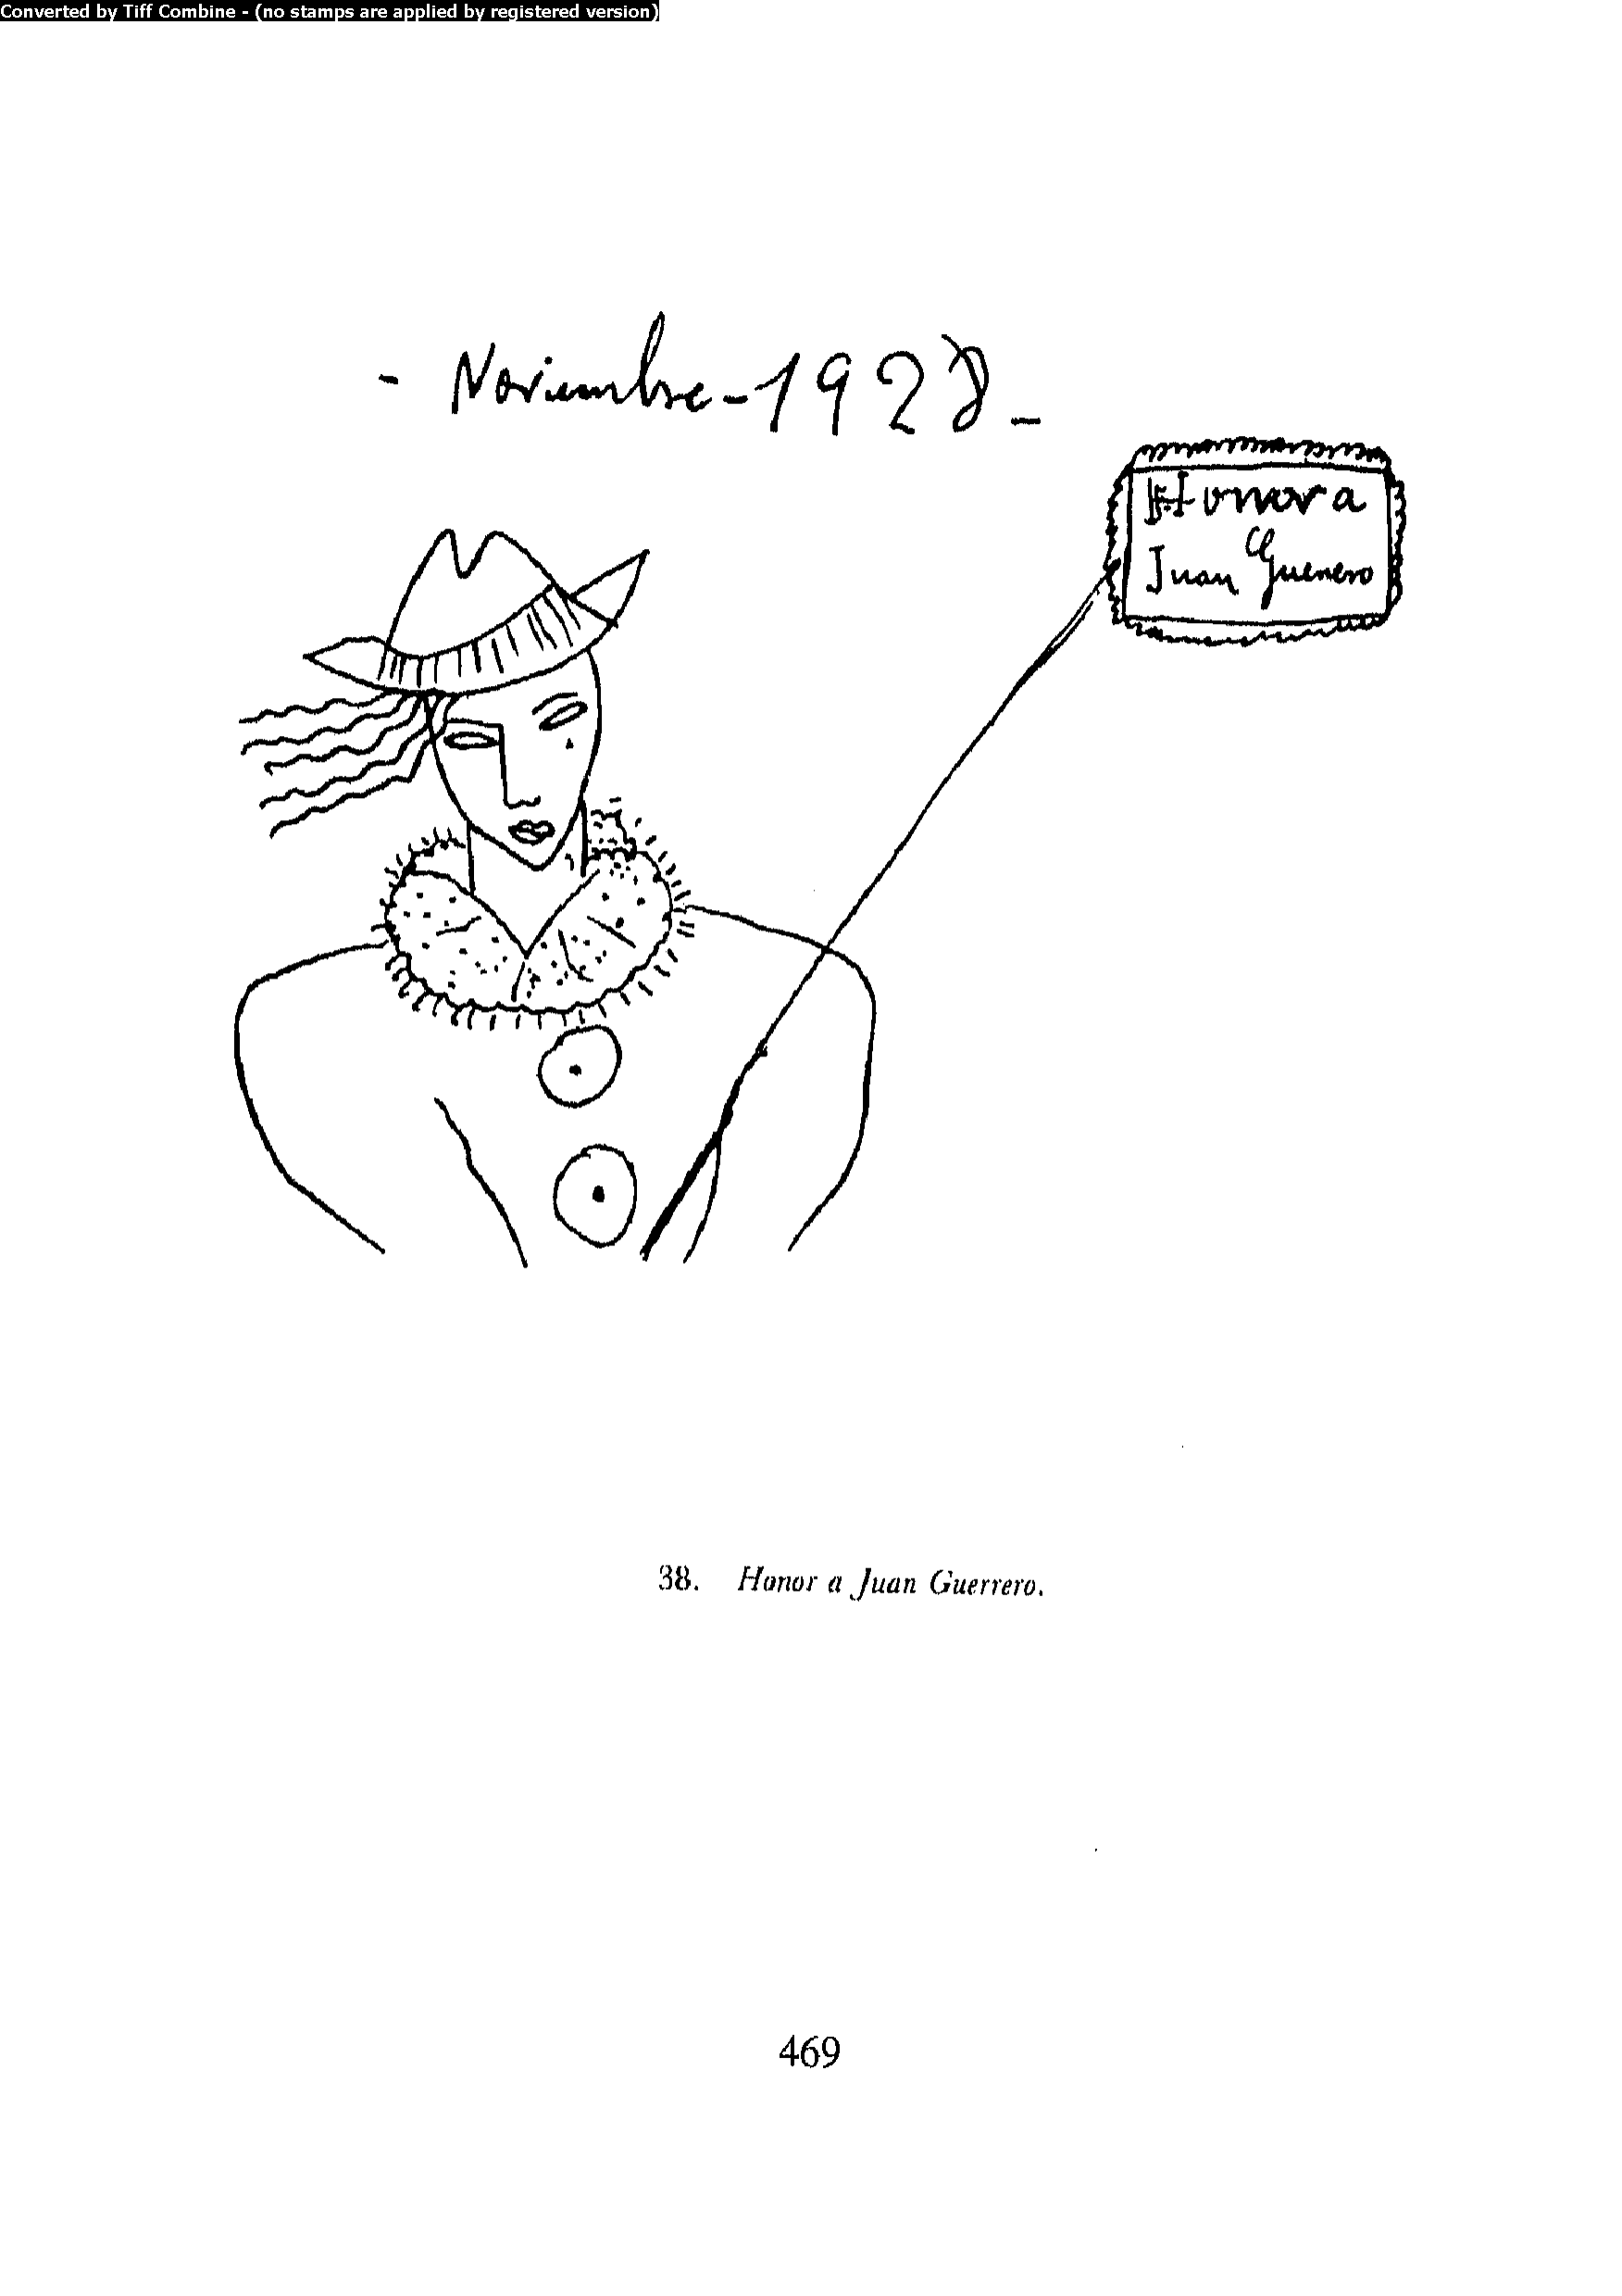 Converted by Tiff Combine - (no stamps are applied by registered version)
- Noviembre - 1928 -
Honor a
Juan Guerrero
38. Honor a Juan Guerrero.
469